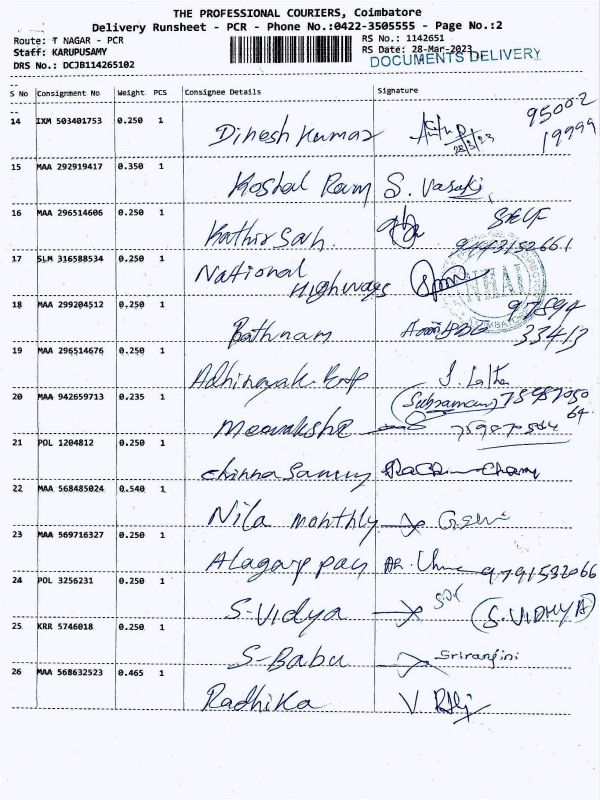 THE PROFESSIONAL COURIERS, Coimbatore
Delivery Runsheet - PCR - Phone No.:0422-3505555 - Page No.:2
Route: T NAGAR - PCR
RS No.: 1142651
Staff: KARUPUSAMY
RS Date: 28-Mar-2023
DRS No.: DCJB114265102
DOCUMENTS DELIVERY
S No Consignment No Weight PCS Consignee Details Signature
14 IXM 503401753 0.250 1 Dinesh Kumar 28/3/23 95002 19999
15 MAA 292919417 0.350 1 Koshal Ram S. Vasaki
16 MAA 296514606 0.250 1 SELF
9443152661
17 SLM 316588534 0.250 1 National Highways
NHAI
18 MAA 299204512 0.250 1 Rathnam 97594 33413
19 MAA 296514676 0.250 1 Adhinayak J. Latha
20 MAA 942659713 0.235 1 Meenakshi
21 POL 1204812 0.250 1 Chinnasamy
22 MAA 568485024 0.540 1 Nila monthly
23 MAA 569716327 0.250 1 Alagappan 9791592066
24 POL 3256231 0.250 1 S-Vidya (S.VIDHYA)
25 KRR 5746018 0.250 1 S-Babu Sriranjini
26 MAA 568632523 0.465 1 Radhika